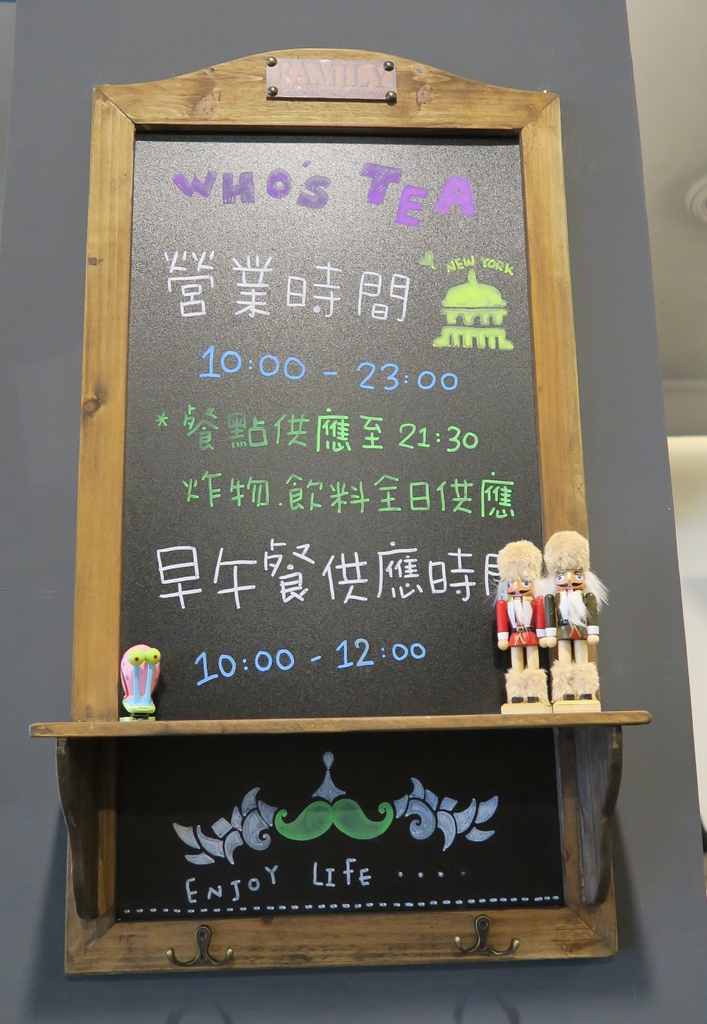 FAMILY
WHO'S TEA
NEW YORK
營業時間
10:00 - 23:00
* 餐點供應至 21:30
炸物.飲料全日供應
早午餐供應時間
10:00 - 12:00
ENJOY LIFE ....